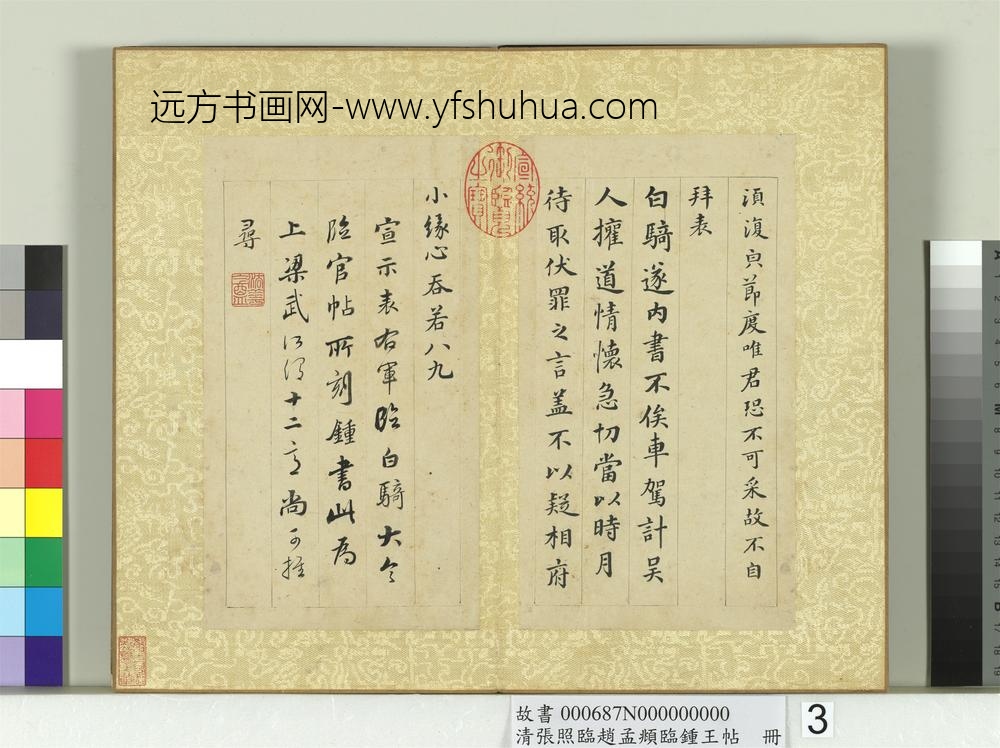 远方书画网-www.yfshuhua.com
須復與節度唯君恐不可采故不自
拜表
白騎遂内書不俟車駕計吴
人權道情懷急切當以時月
待取伏罪之言盖不以疑相府
小緣心吞若八九
宣示表右軍臨白騎大令
臨官帖所刻鍾書此為
上梁武十二意尚可推
尋
宣統御覽之寶
故書 000687N000000000
清張照臨趙孟頫臨鍾王帖 冊
3